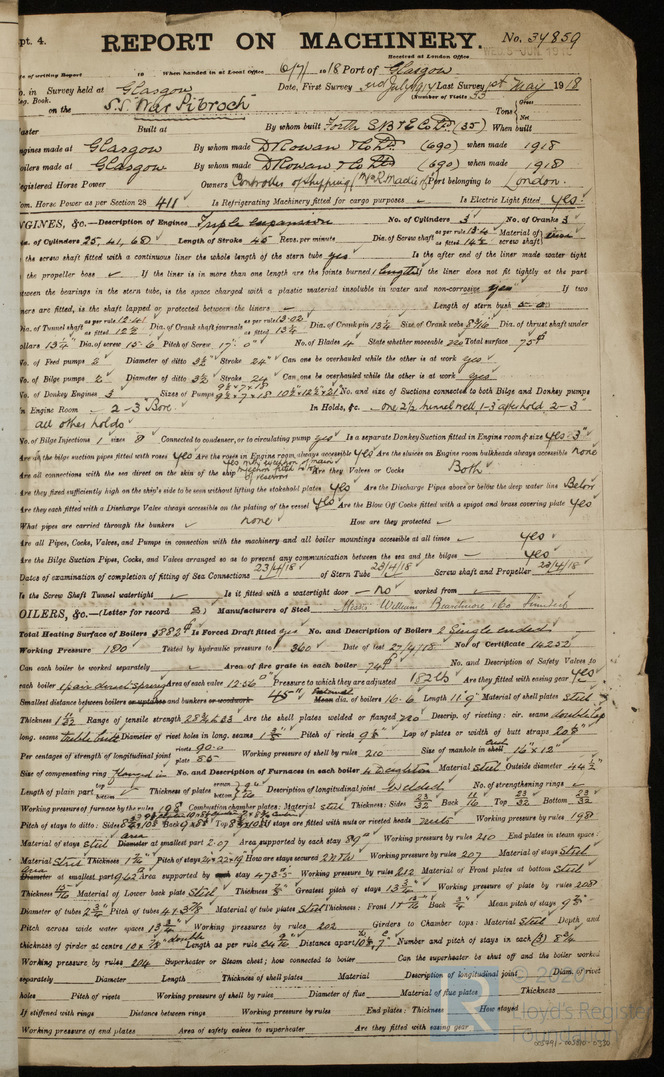 pt. 4.
REPORT ON MACHINERY.
No. 34859
Received at London Office
WED. 5-JUN. 1918
of writing Report 19 When handed in at Local Office 6/7/ 1918 Port of Glasgow
in Survey held at Glasgow Date, First Survey July 1917 Last Survey 1st May 1918
Reg. Book. (Number of Visits 33
on the S.S. "War Pibroch" Tons Gross Net
Master Built at By whom built Forth S.B. & E. Co Ltd (35) When built
Engines made at Glasgow By whom made D. Rowan & Co Ltd (690) when made 1918
Boilers made at Glasgow By whom made D. Rowan & Co Ltd (690) when made 1918
Registered Horse Power Owners Controller of Shipping Port belonging to London.
Nom. Horse Power as per Section 28 411 Is Refrigerating Machinery fitted for cargo purposes Is Electric Light fitted yes.
ENGINES, &c.—Description of Engines Triple expansion No. of Cylinders 3 No. of Cranks 3
Dia. of Cylinders 25, 41, 68 Length of Stroke 45 Revs. per minute Dia. of Screw shaft as per rule 13.4 as fitted 14½ Material of screw shaft iron
the screw shaft fitted with a continuous liner the whole length of the stern tube yes Is the after end of the liner made water tight
the propeller boss If the liner is in more than one length are the joints burned 1 length If the liner does not fit tightly at the part
between the bearings in the stern tube, is the space charged with a plastic material insoluble in water and non-corrosive yes If two
liners are fitted, is the shaft lapped or protected between the liners Length of stern bush 5-0
Dia. of Tunnel shaft as per rule as fitted Dia. of Crank shaft journals as per rule 13.02 as fitted 13¼ Dia. of Crank pin 13¼ Size of Crank webs Dia. of thrust shaft under
collars 13¼ Dia. of screw 15-6 Pitch of Screw 17-0 No. of Blades 4 State whether moveable no Total surface 75
No. of Feed pumps 2 Diameter of ditto 3½ Stroke 24" Can one be overhauled while the other is at work yes
No. of Bilge pumps 2 Diameter of ditto 3½ Stroke 24 Can one be overhauled while the other is at work yes
No. of Donkey Engines 3 Sizes of Pumps No. and size of Suctions connected to both Bilge and Donkey pumps
In Engine Room 2-3" Bore In Holds, &c. one 2½ tunnel well, 1-3 after hold 2-3
all other holds
No. of Bilge Injections 1 sizes 8 Connected to condenser, or to circulating pump yes Is a separate Donkey Suction fitted in Engine room & size yes 3"
Are all the bilge suction pipes fitted with roses yes Are the roses in Engine room always accessible yes Are the sluices on Engine room bulkheads always accessible none
Are all connections with the sea direct on the skin of the ship yes with exception of main injection Are they Valves or Cocks Both
Are they fixed sufficiently high on the ship's side to be seen without lifting the stokehold plates yes Are the Discharge Pipes above or below the deep water line Below
Are they each fitted with a Discharge Valve always accessible on the plating of the vessel yes Are the Blow Off Cocks fitted with a spigot and brass covering plate yes
What pipes are carried through the bunkers none How are they protected
Are all Pipes, Cocks, Valves, and Pumps in connection with the machinery and all boiler mountings accessible at all times yes
Are the Bilge Suction Pipes, Cocks, and Valves arranged so as to prevent any communication between the sea and the bilges yes
Dates of examination of completion of fitting of Sea Connections 23/4/18 of Stern Tube 23/4/18 Screw shaft and Propeller 23/4/18
Is the Screw Shaft Tunnel watertight Is it fitted with a watertight door no worked from
BOILERS, &c.—(Letter for record S) Manufacturers of Steel Messrs William Beardmore & Co Limited
Total Heating Surface of Boilers 5882 Is Forced Draft fitted yes No. and Description of Boilers 2 Single ended
Working Pressure 180 Tested by hydraulic pressure to 360 Date of test 27/4/18 No. of Certificate 14252
Can each boiler be worked separately Area of fire grate in each boiler 74 No. and Description of Safety Valves to
each boiler 1 pair direct spring Area of each valve 12.56 Pressure to which they are adjusted 182 lb Are they fitted with easing gear yes
Smallest distance between boilers or uptakes and bunkers or woodwork 45" dia. of boilers 16-6 Length 11-9 Material of shell plates Steel
Thickness 1 Range of tensile strength Are the shell plates welded or flanged no Descrip. of riveting: cir. seams double lap
long. seams treble butt Diameter of rivet holes in long. seams Pitch of rivets Lap of plates or width of butt straps
Per centages of strength of longitudinal joint rivets 90.0 plate 85 Working pressure of shell by rules 210 Size of manhole in 16" x 12"
Size of compensating ring flanged in No. and Description of Furnaces in each boiler 4 Deighton Material Steel Outside diameter 44½
Length of plain part top bottom Thickness of plates crown bottom Description of longitudinal joint Welded No. of strengthening rings
Working pressure of furnace by the rules 198 Combustion chamber plates: Material steel Thickness: Sides 23/32 Back Top 23/32 Bottom 23/32
Pitch of stays to ditto: Sides Back Top If stays are fitted with nuts or riveted heads nuts Working pressure by rules 198
Material of stays Steel area at smallest part 2.07 Area supported by each stay 89 Working pressure by rules 210 End plates in steam space:
Material Steel Thickness Pitch of stays How are stays secured Working pressure by rules 207 Material of stays Steel
Area at smallest part Area supported by each stay 473 Working pressure by rules 212 Material of Front plates at bottom Steel
Thickness Material of Lower back plate Steel Thickness Greatest pitch of stays 13¾ Working pressure of plate by rules 208
Diameter of tubes Pitch of tubes Material of tube plates Steel Thickness: Front Back Mean pitch of stays
Pitch across wide water spaces Working pressures by rules 202 Girders to Chamber tops: Material Steel Depth and
thickness of girder at centre double Length as per rule Distance apart Number and pitch of stays in each (3) 8¾
Working pressure by rules 204 Superheater or Steam chest; how connected to boiler Can the superheater be shut off and the boiler worked
separately Diameter Length Thickness of shell plates Material Description of longitudinal joint Diam. of rivet
holes Pitch of rivets Working pressure of shell by rules Diameter of flue Material of flue plates Thickness
If stiffened with rings Distance between rings Working pressure by rules End plates: Thickness How stayed
Working pressure of end plates Area of safety valves to superheater Are they fitted with easing gear
© 2020
Lloyd's Register
Foundation
005791-005810-0330